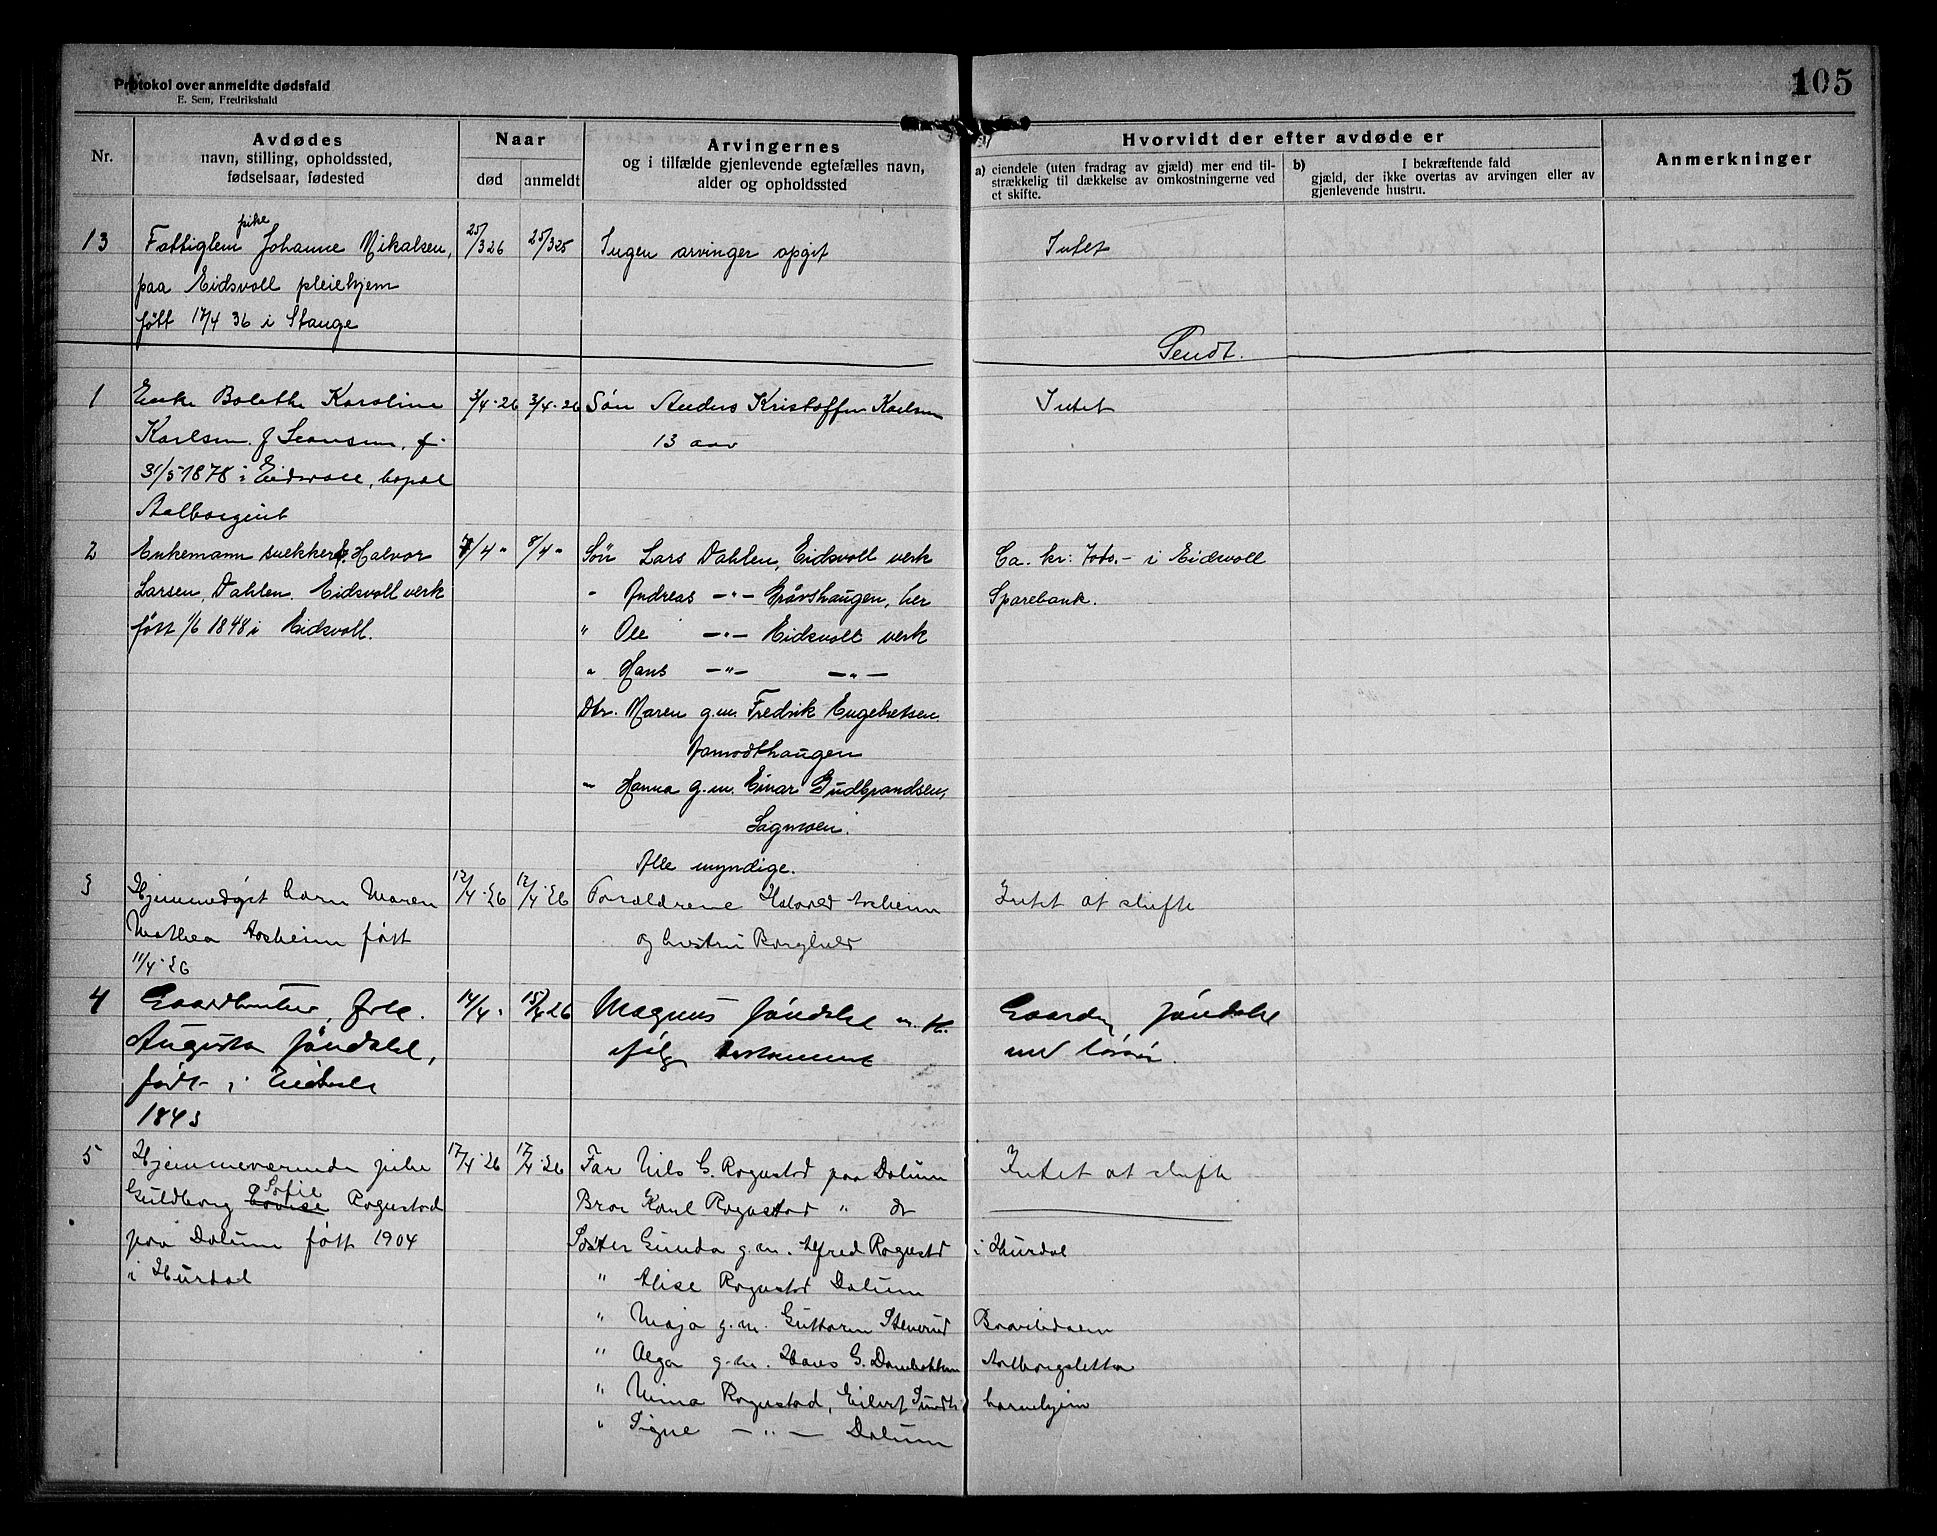 Protokol over anmeldte dødsfald
E. Sem, Fredrikshald
105
Nr.
Avdødes
navn, stilling, opholdssted,
fødselsaar, fødested
Naar
død
anmeldt
Arvingernes
og i tilfælde gjenlevende egtefælles navn,
alder og opholdssted
Hvorvidt der efter avdøde er
a) eiendele (uten fradrag av gjæld) mer end til-
strækkelig til dækkelse av omkostningerne ved
et skifte.
b) I bekræftende fald
gjæld, der ikke overtas av arvingen eller av
gjenlevende hustru.
Anmerkninger
pike
13 Fattiglem Johanne Mikalsen, 25/3 26 25/3 25 Ingen arvinger opgit Intet
paa Eidsvoll pleiehjem
født 17/4 36 i Stange
Sendt.
1 Enke Bolette Karoline 3/4-26 3/4-26 Søn Anders Kristoffer Karlsen Intet
Karlsen f. f.
13 aar
31/5 1878 i Eidsvoll, bopæl
2 Enkemann snekker Halvor 7/4 " 8/4 " Søn Lars Dahlen, Eidsvoll verk Ca. kr: i Eidsvoll
Larsen Dahlen. Eidsvoll verk " Andreas -"- her Sparebank.
født 1/6 1848 i Eidsvoll. " Ole -"- Eidsvoll verk
" Hans -"- -"-
Dtr. Maren g.m. Fredrik Engebretsen
- Hanna g.m. Einar Gudbrandsen,
Sagmoen.
Alle myndige.
3 Hjemmedøpt barn Maren 12/4-26 12/4-26 Forældrene Aasheim Intet at skifte
Mathea Aasheim født og hustru Borghild
11/4-26
4 Gaardbruker, frk. 14/4 " 15/4 26 Magnus Jøndahl Gaarden Jøndahl
Augusta Jøndahl, ifølge testamente med løsøre.
født i Eidsvoll
1843
5 Hjemmeværende pike 17/4-26 17/4-26 Far Nils G. Rognstad paa Dolum Intet at skifte
Sofie
Guldborg Rognstad Bror Karl Rognstad " do
paa Dolum født 1904 Søster Gunda g.m. Alfred Rognstad i Hurdal
i Hurdal " Alise Rognstad Dolum
" Maja g.m. Guttorm Stenerud
" g.m. Hans G.
" Nina Rognstad, Eilert Sundts barnehjem
" Signe -"- Dolum